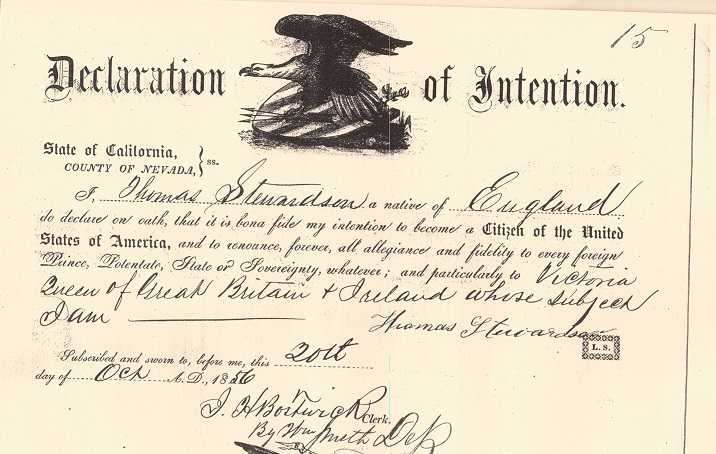 15
Declaration of Intention.
State of California,
COUNTY OF NEVADA, } ss.
I, Thomas Stewardson a native of England
do declare on oath, that it is bona fide my intention to become a Citizen of the United
States of America, and to renounce, forever, all allegiance and fidelity to every foreign
Prince, Potentate, State or Sovereignty, whatever; and particularly to Victoria
Queen of Great Britain & Ireland whose subject
I am
Thomas Stewardson
L. S.
Subscribed and sworn to, before me, this 20th
day of Oct A. D., 1856
J. H. Bostwick Clerk.
By Wm Smith Dep